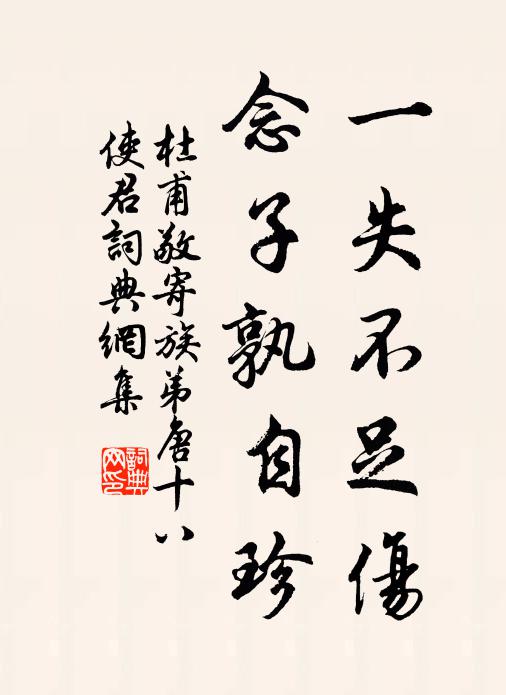 一失不足傷
念子孰自珍
杜甫敬寄族弟唐十八
使君詞典網集
詞典
网印